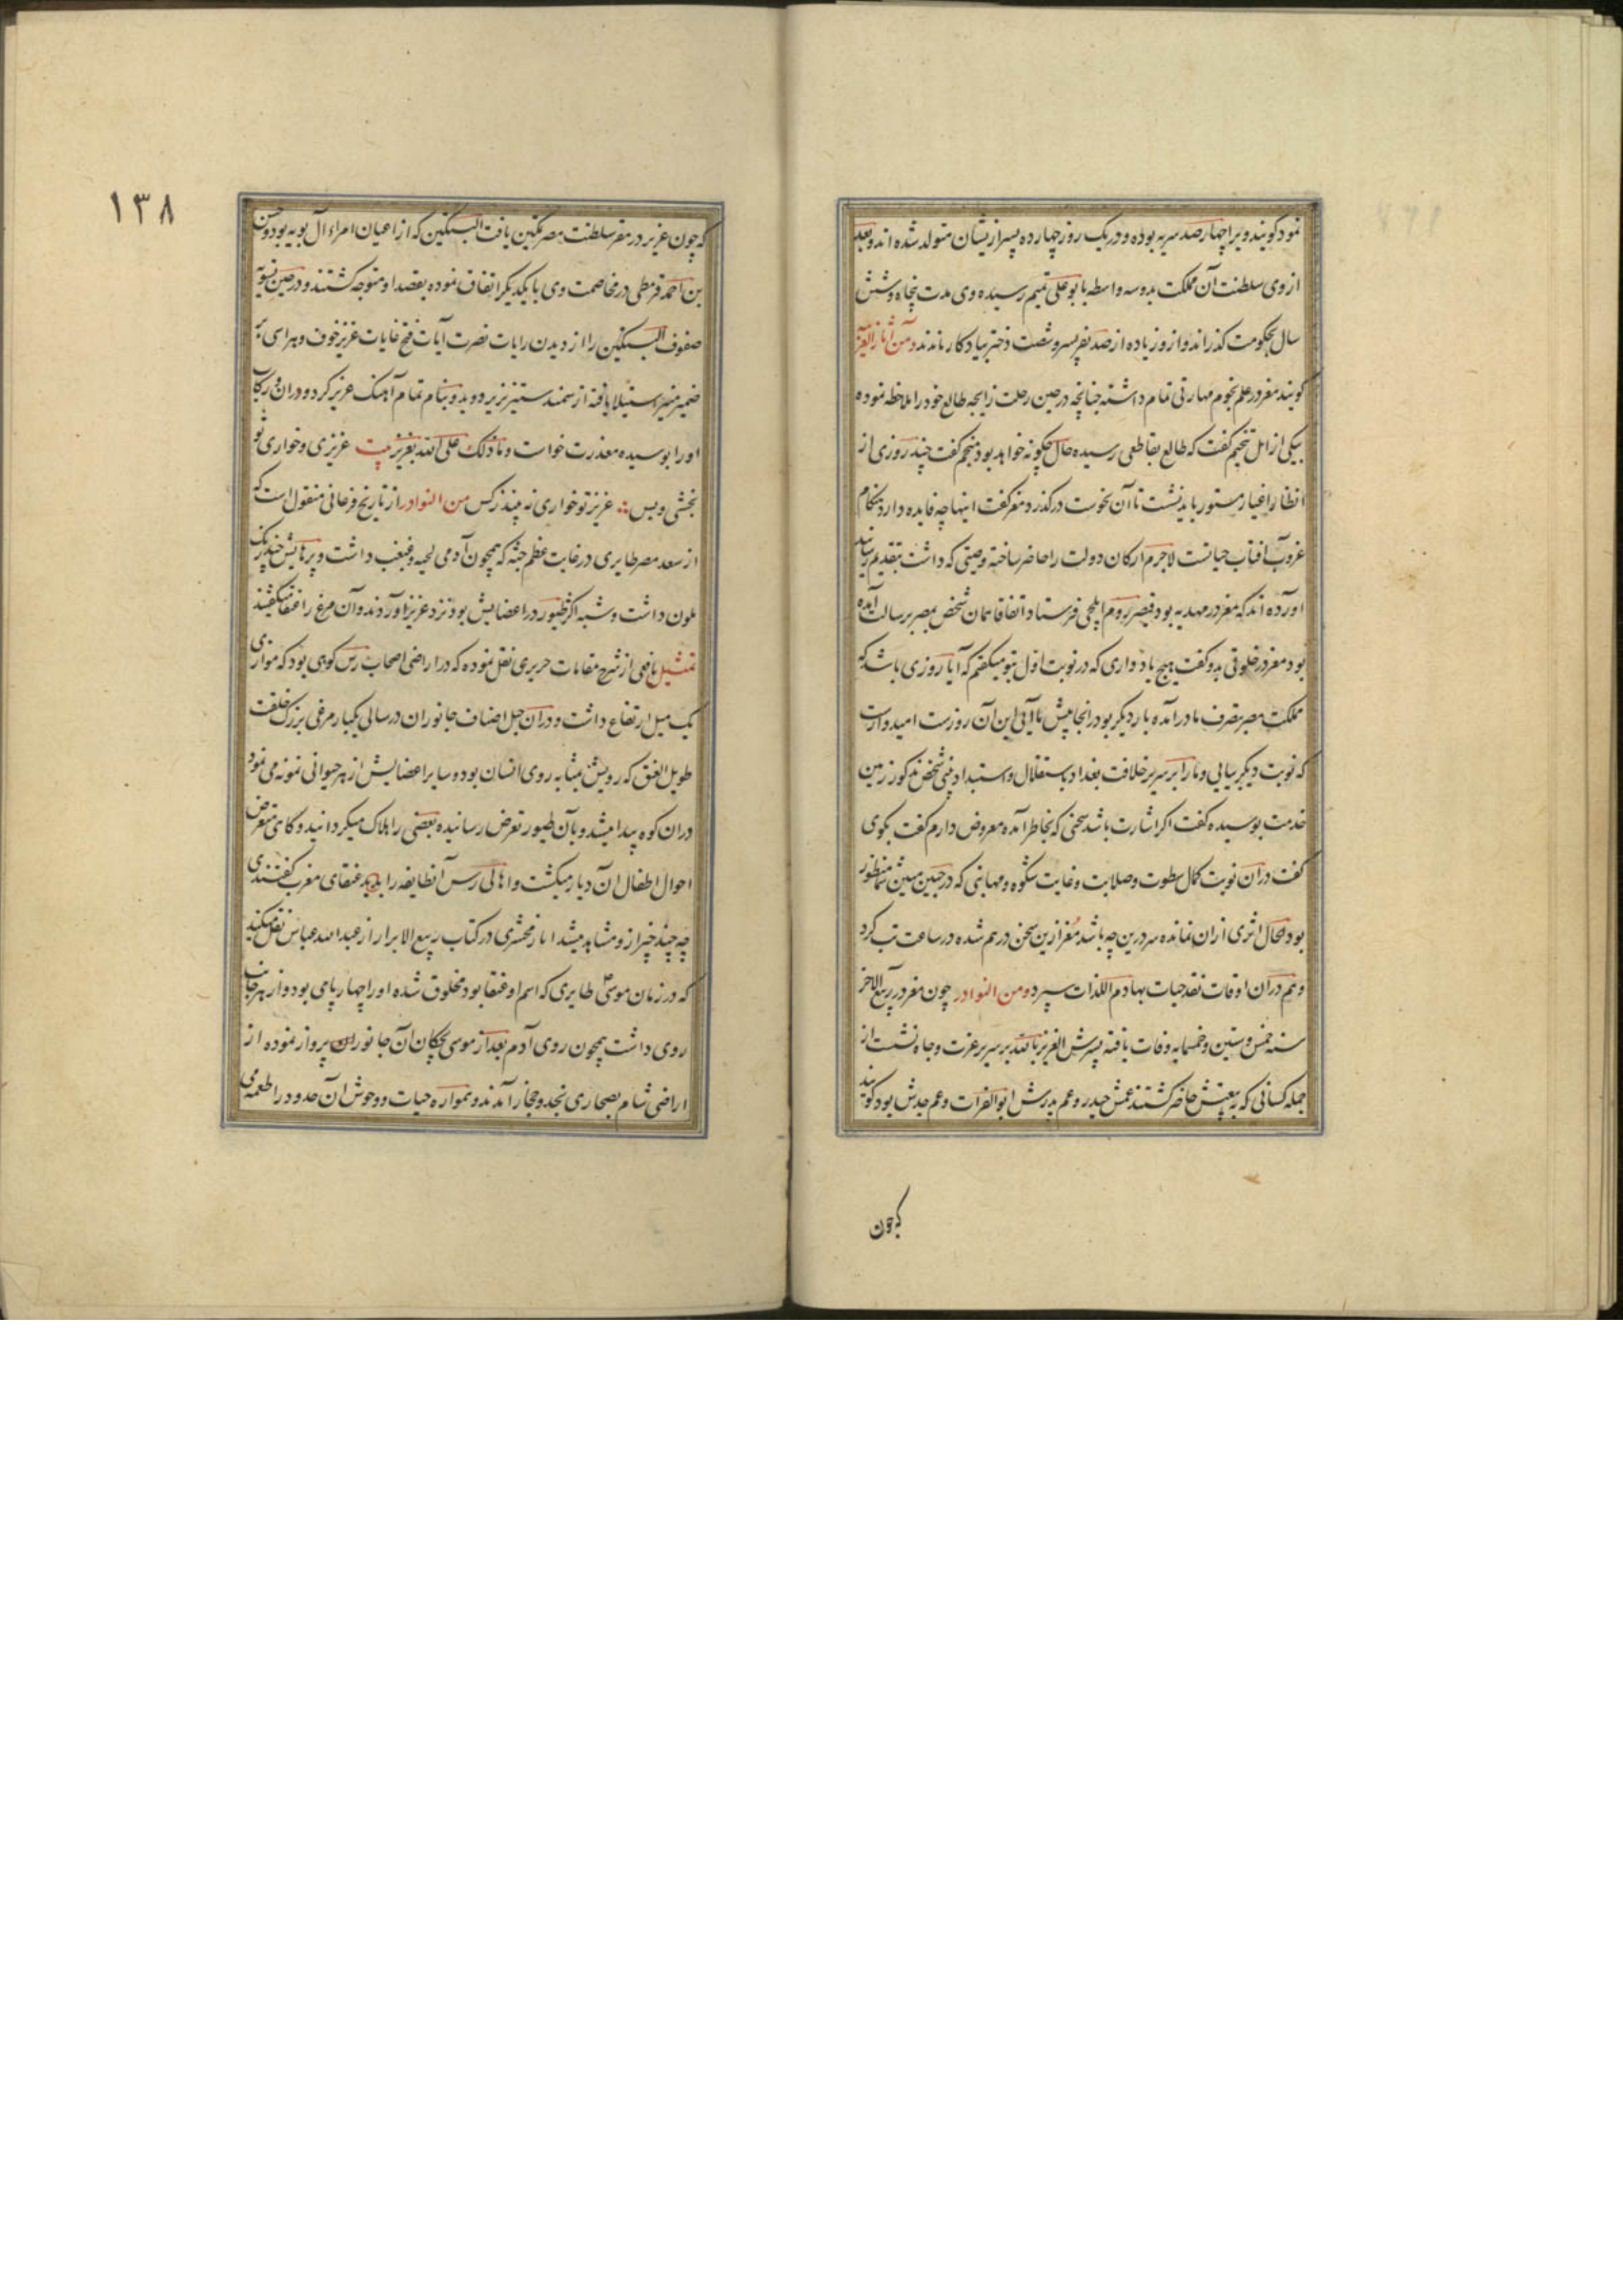 نمود کویند ویرا چهار صد سریه بوده و در یک روز چهارده پسر ازیشان متولد شده اند و بعد
از وی سلطنت آن مملکت بدو سه واسطه بابو علی تمیم رسیده وی مدت پنجاه و شش
سال بحکومت گذراند و ازو زیاده از صد نفر پسر و شصت دختر بیادکار ماندند و من آثار
کویند معز در علم نجوم مهارتی تمام داشته چنانچه در حین رحلت زایجه طالع خود را ملاحظه نموده
بیکی از اهل تنجیم کفت که طالع بقاطعی رسیده حال چکونه خواهد بود منجم کفت چند روزی از
انظار اغیار مستور باید نشست تا آن نحوست درکذرد معز کفت اینها چه فایده دارد هنکام
غروب افتاب حیاتست لاجرم ارکان دولت را حاضر ساخته وصیتی که داشت بتقدیم رسانید
اورده اند که معز در مهدیه بود قیصر روم ایلچی فرستاد اتفاقا همان شخص بمصر برسالت آمده
بود معز در خلوتی بدو کفت هیچ یاد داری که در نوبت اول بتو میکفتم که آیا روزی باشد که
مملکت مصر بتصرف ما درآمده بار دیکر بو در انجا پیش ما آئی این آن روزست امیدوارست
که نوبت دیکر بیایی و ما را بر سریر خلافت بغداد باستقلال و استبداد بینی شخص مذکور زمین
خدمت بوسیده کفت اکر اشارت باشد سخنی که بخاطر آمده معروض دارم کفت بکوی
کفت در ان نوبت کمال سطوت و صلابت و غایت شکوه و مهابتی که در جبین مبین شما منظور
بود بحال اثری از ان نمانده سر درین چه باشد معز ازین سخن درهم شده در ساعت تب کرد
و هم در ان اوقات نقد حیات بهادم اللذات سپرد و من النوادر چون معز در ربیع الاخر
سنه خمس و ستین و خمسمایه وفات یافته پسرش العزیز بالله بر سریر عزت و جاه نشست از
جمله کسانی که به بیعتش حاضر کشتند عمش حیدر و عم پدرش ابو الفرات و عم جدش بود کویند
که چون
۱۳۸
که چون عزیز در مقر سلطنت مصر تمکین یافت البتکین که از اعیان امراء آل بویه بود و حسن
بن احمد قرمطی در مخاصمت وی با یکدیکر اتفاق نموده بقصد او متوجه کشتند و در حین تسویه
صفوف البتکین را از دیدن رایات نصرت آیات فتح غایات عزیز خوف و هراسی بر
ضمیر منیر استیلا یافته از سمند ستیز بزیر دوید و بتمام تمام آهنک عزیز کرد و در ان رکاب
او را بوسیده معذرت خواست و ما ذلک علی الله بعزیز بیت عزیزی و خواری تو
بخشی و بس عزیز تو خواری نه بیند ز کس من النوادر از تاریخ فرغانی منقول است که
از سعد مصر طایری در غایت عظم جثه که همچون آدمی لحیه و غبغب داشت و پرهایش چند رنک
ملون داشت و شبه اکثر طیور در اعضایش بود نزد عزیز اوردند و آن مرغ را عنقا میکفتند
تمثیل یافعی از شرح مقامات حریری نقل نموده که در اراضی اصحاب رس کوهی بود که موازی
یک میل ارتفاع داشت و در ان جبل اصناف جانوران در سالی یکبار مرغی بزرک خلقت
طویل العنق که رویش مشابه روی انسان بود و سایر اعضایش از هر حیوانی نمونه می نمود
در ان کوه پیدا میشد و بآن طیور تعرض رسانیده بعضی را هلاک میکردانید و کاهی متعرض
احوال اطفال ان دیار میکشت و اهالی رس آن طایفه را عنقای مغرب کفتندی
چه چند چیز ازو مشاهد میشد اما زمخشری در کتاب ربیع الابرار از عبد الله عباس نقل میکند
که در زمان موسی ع طایری که اسم او عنقا بود مخلوق شده او را چهار پای بود و از هر جانب
روی داشت همچون روی آدم بعد از موسی بچکان آن جانوران پرواز نموده از
اراضی شام بصحاری نجد و حجاز آمدند و همواره حیات و وحوش آن حدود را طعمه می